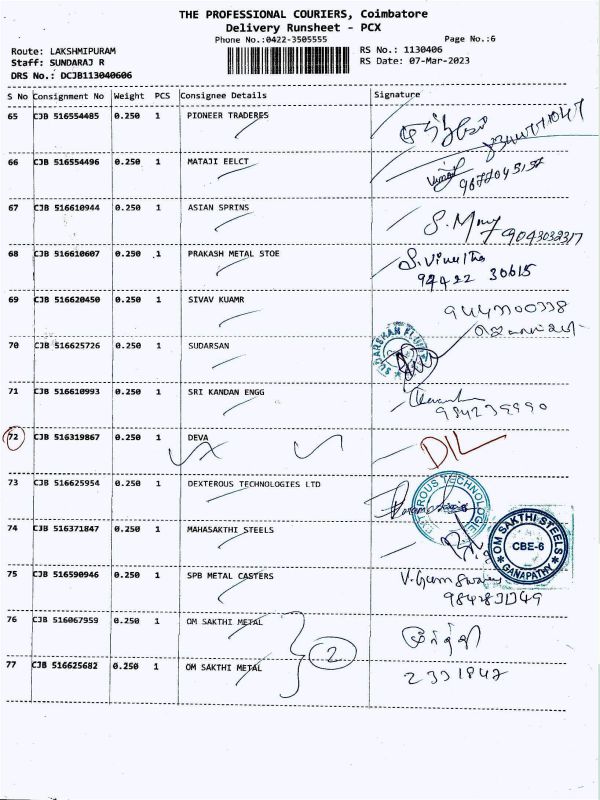 THE PROFESSIONAL COURIERS, Coimbatore
Delivery Runsheet - PCX
Phone No.:0422-3505555
Page No.:6
Route: LAKSHMIPURAM
Staff: SUNDARAJ R
DRS No.: DCJB113040606
RS No.: 1130406
RS Date: 07-Mar-2023
S No Consignment No Weight PCS Consignee Details Signature
65 CJB 516554485 0.250 1 PIONEER TRADERES
66 CJB 516554496 0.250 1 MATAJI EELCT
67 CJB 516610944 0.250 1 ASIAN SPRINS
9043032317
68 CJB 516610607 0.250 1 PRAKASH METAL STOE
94422 30615
69 CJB 516620450 0.250 1 SIVAV KUAMR
70 CJB 516625726 0.250 1 SUDARSAN
71 CJB 516610993 0.250 1 SRI KANDAN ENGG
72 CJB 516319867 0.250 1 DEVA
D/L
73 CJB 516625954 0.250 1 DEXTEROUS TECHNOLOGIES LTD
74 CJB 516371847 0.250 1 MAHASAKTHI STEELS
OM SAKTHI STEELS
CBE-6
GANAPATHY
75 CJB 516590946 0.250 1 SPB METAL CASTERS
76 CJB 516067959 0.250 1 OM SAKTHI METAL
2
77 CJB 516625682 0.250 1 OM SAKTHI METAL
2331847